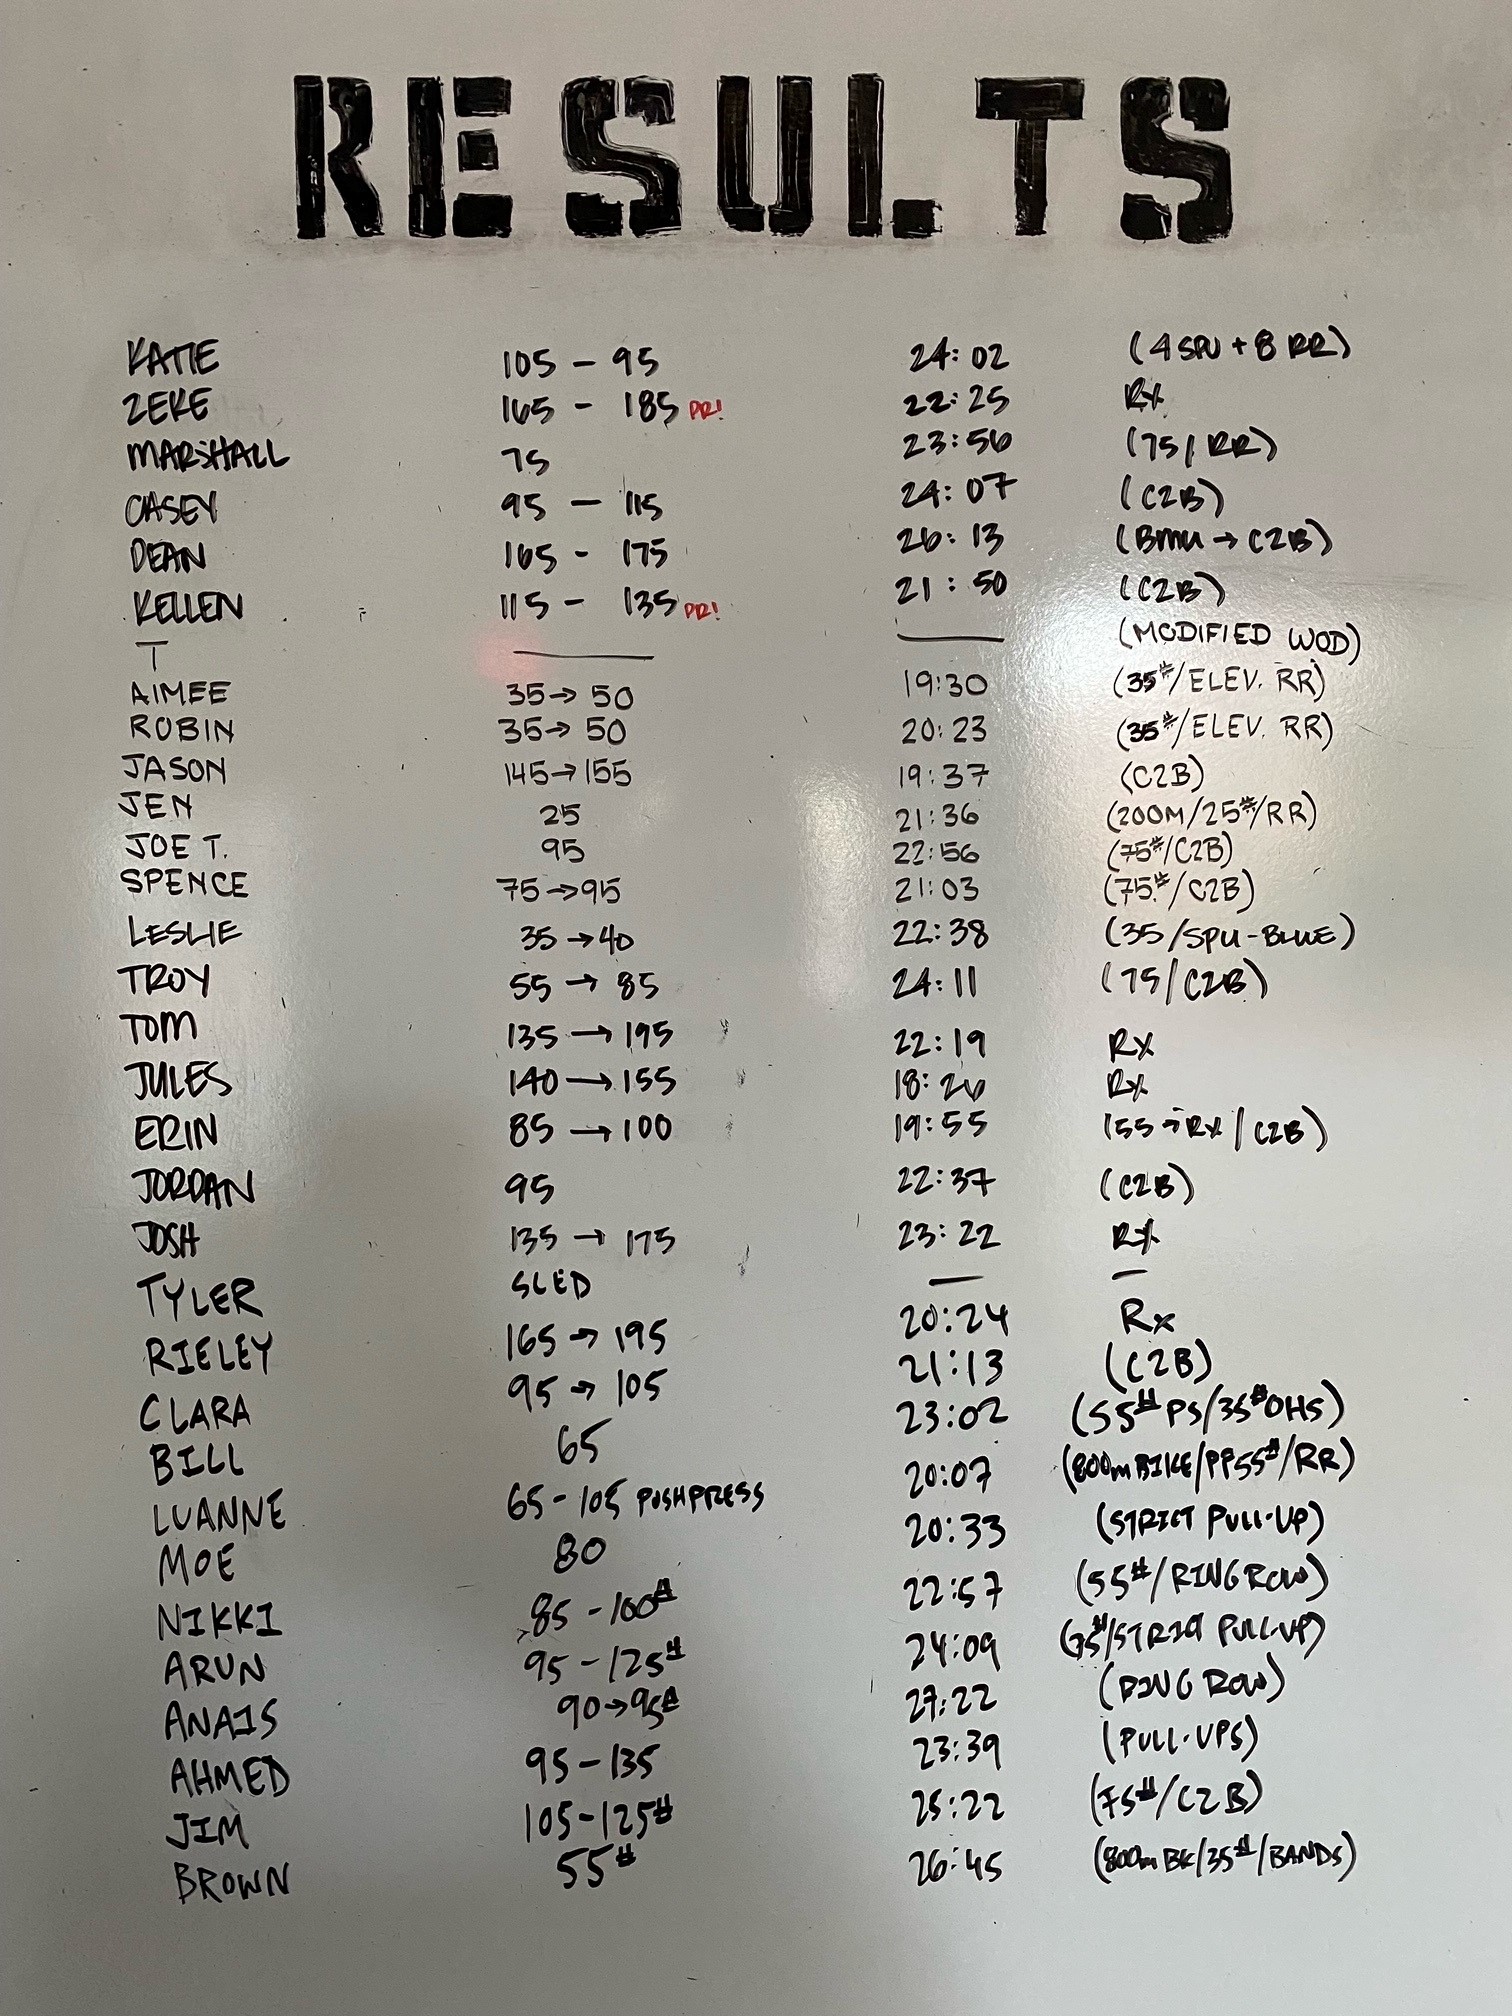 RESULTS
KATIE 105 - 95 24:02 (4 SPU + 8 RR)
ZEKE 165 - 185 PR! 22:25 Rx
MARSHALL 75 23:56 (75/RR)
CASEY 95 - 115 24:07 (C2B)
DEAN 165 - 175 26:13 (BMU → C2B)
KELLEN 115 - 135 PR! 21:50 (C2B)
T — — (MODIFIED WOD)
AIMEE 35→50 19:30 (35#/ELEV. RR)
ROBIN 35→50 20:23 (35#/ELEV. RR)
JASON 145→155 19:37 (C2B)
JEN 25 21:36 (200M/25#/RR)
JOE T. 95 22:56 (75#/C2B)
SPENCE 75→95 21:03 (75#/C2B)
LESLIE 35→40 22:38 (35/SPU-BLUE)
TROY 55→85 24:11 (75/C2B)
TOM 135→195 22:19 Rx
JULES 140→155 18:26 Rx
ERIN 85→100 19:55 (55→Rx/C2B)
JORDAN 95 22:37 (C2B)
JOSH 135→175 23:22 Rx
TYLER SLED — —
RIELEY 165→195 20:24 Rx
CLARA 95→105 21:13 (C2B)
BILL 65 23:02 (55# PS/35# OHS)
LUANNE 65-105 PUSHPRESS 20:07 (800m BIKE/PP55#/RR)
MOE 80 20:33 (STRICT PULL-UP)
NIKKI 85-100# 22:57 (55#/RING ROW)
ARUN 95-125# 24:09 (75#/STRICT PULL-UP)
ANAIS 90→95# 27:22 (RING ROW)
AHMED 95-135 23:39 (PULL-UPS)
JIM 105-125# 25:22 (75#/C2B)
BROWN 55# 26:45 (800m BK/35#/BANDS)